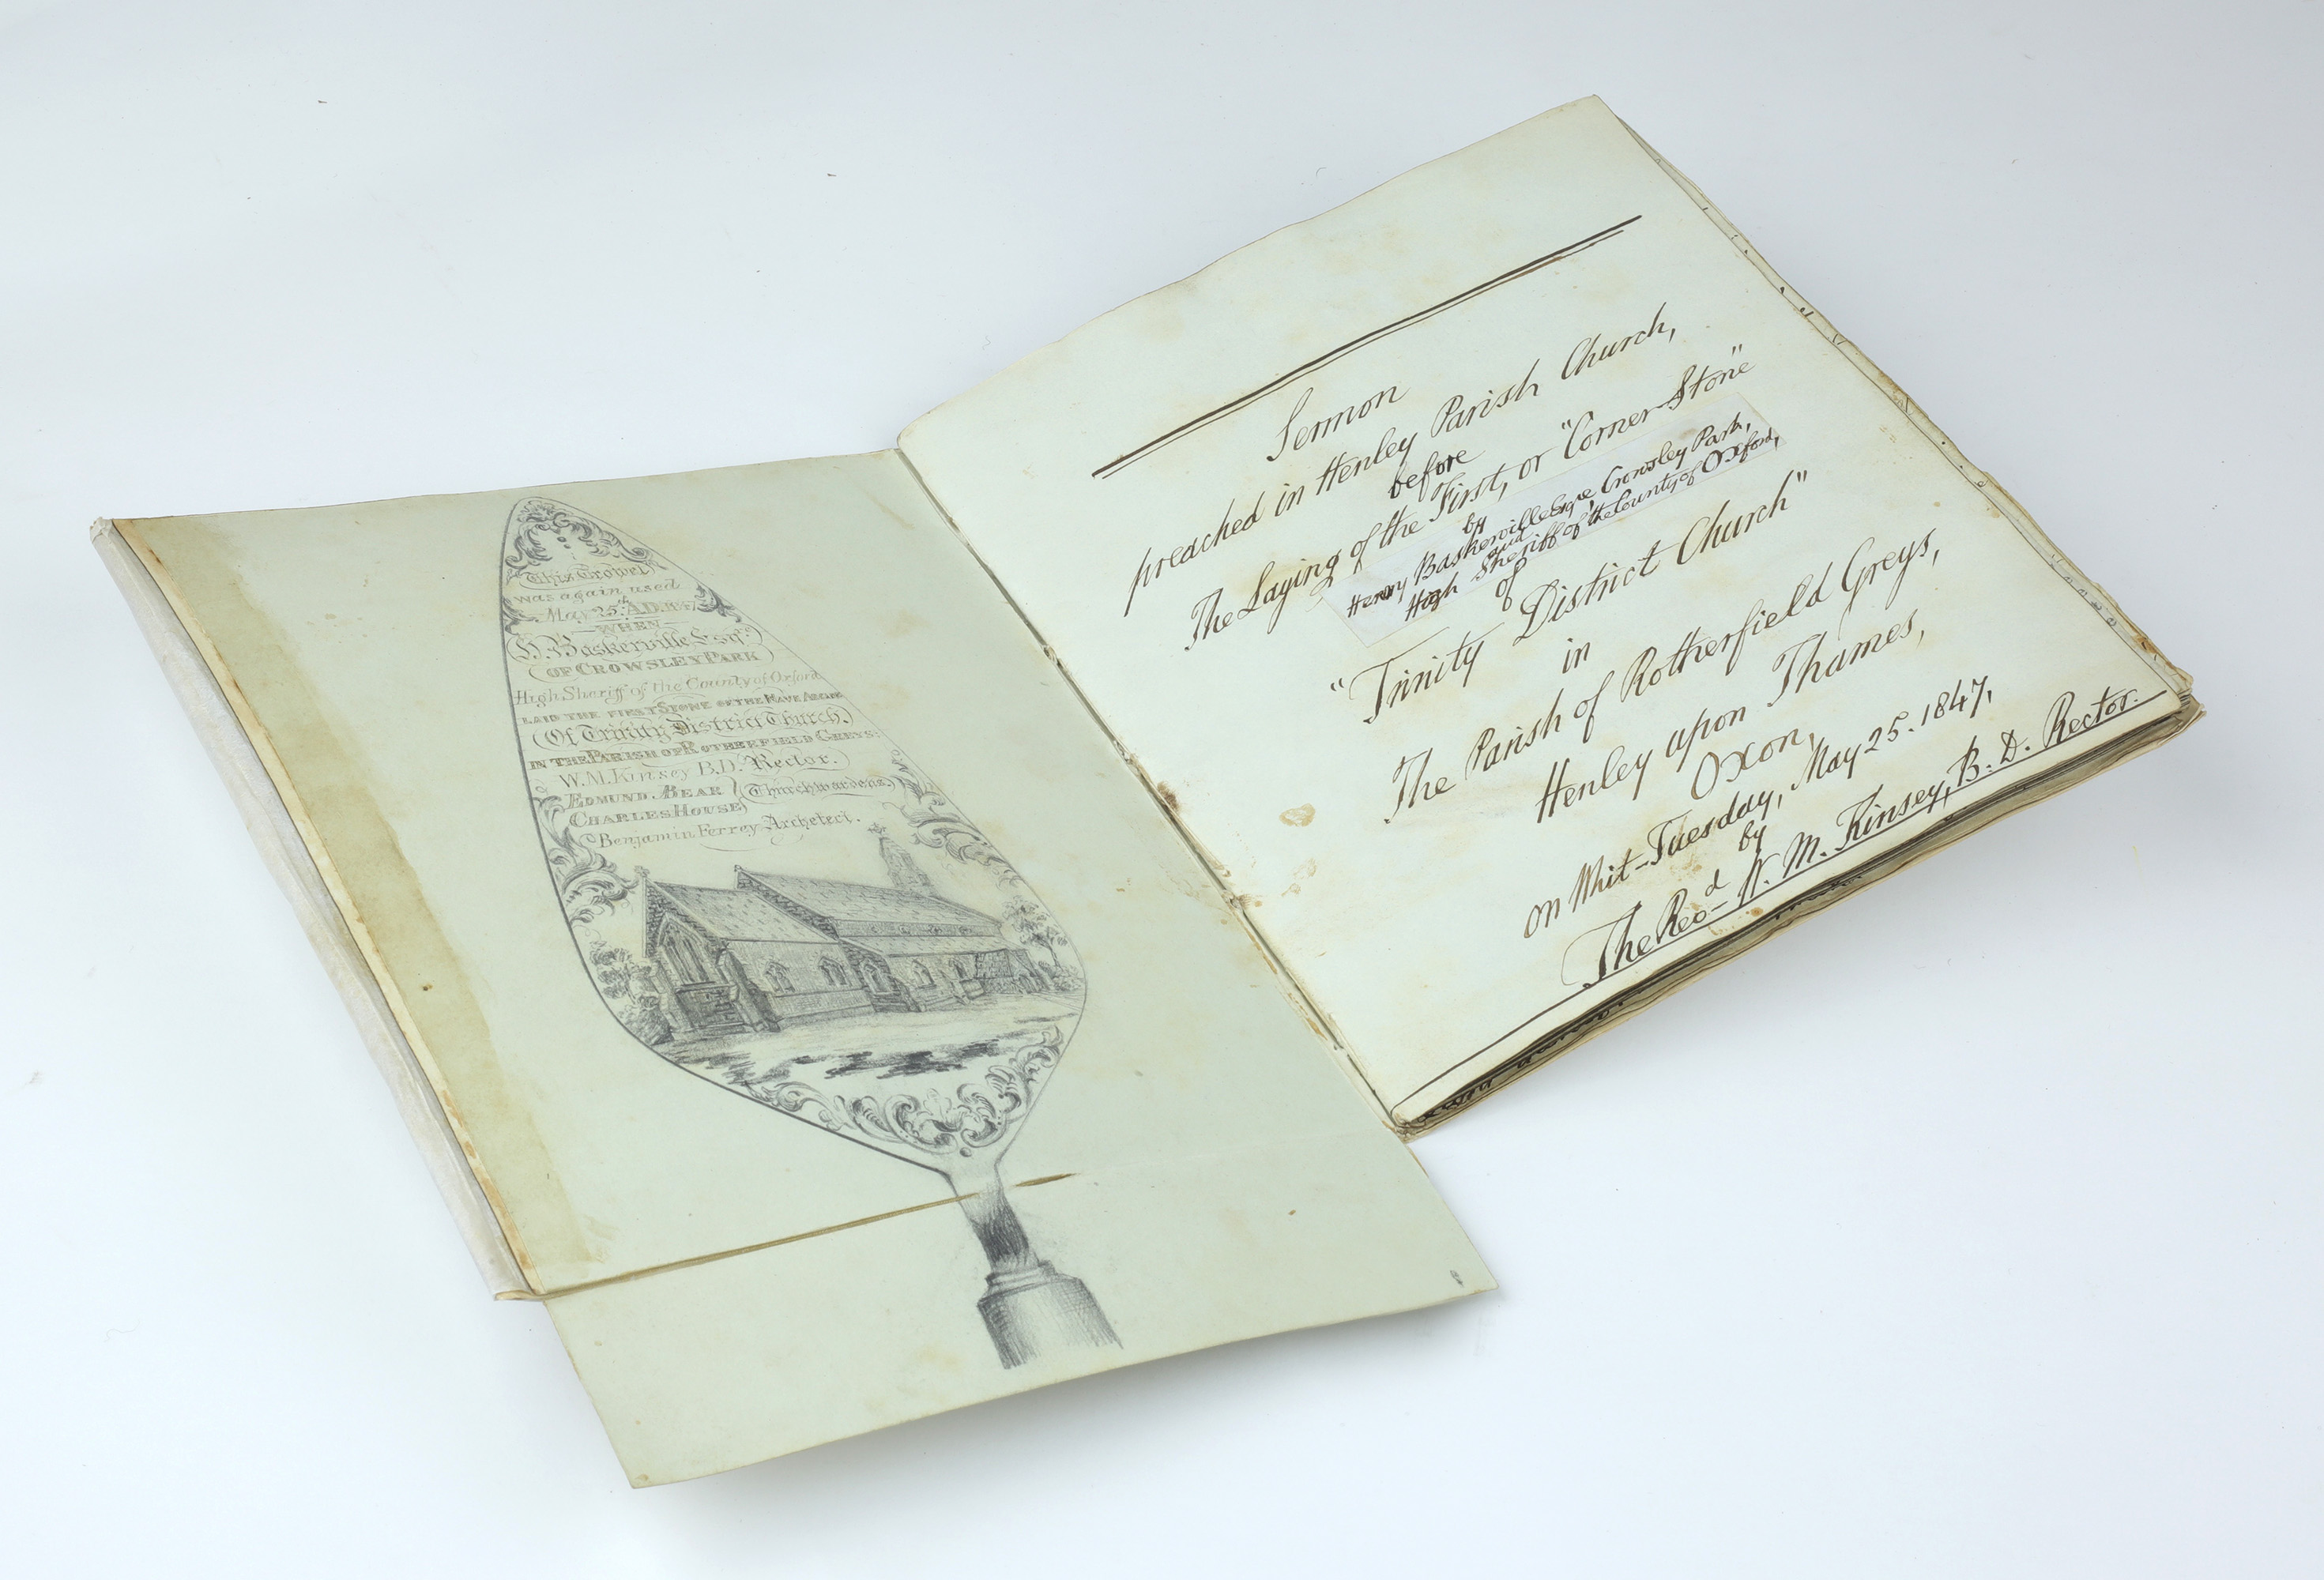 This Trowel
was again used
May 25th A.D. 1847
WHEN
H. Baskerville Esqre.
OF CROWSLEY PARK
High Sheriff of the County of Oxford
LAID THE FIRST STONE OF THE NAVE
(Of Trinity District Church.)
IN THE PARISH OF ROTHERFIELD GREYS:
W. M. Kinsey B.D. Rector.
EDMUND. BEAR
CHARLES HOUSE
(Churchwardens.)
Benjamin Ferrey Archetect.
Sermon
preached in Henley Parish Church,
before
The Laying of the First, or "Corner-Stone"
by
Henry Baskerville Esqre, Crowsley Park,
and
High Sheriff of the County of Oxford,
of
"Trinity District Church"
in
The Parish of Rotherfield Greys,
Henley upon Thames,
Oxon,
on Whit-Tuesday, May 25. 1847,
by
The Revd W. M. Kinsey, B. D. Rector.